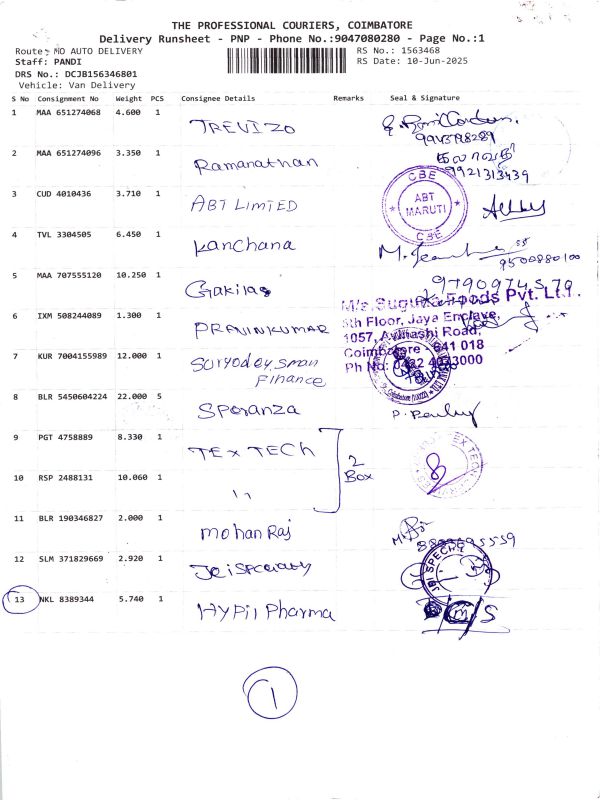 THE PROFESSIONAL COURIERS, COIMBATORE
Delivery Runsheet - PNP - Phone No.:9047080280 - Page No.:1
Route: MO AUTO DELIVERY RS No.: 1563468
Staff: PANDI RS Date: 10-Jun-2025
DRS No.: DCJB156346801
Vehicle: Van Delivery
S No Consignment No Weight PCS Consignee Details Remarks Seal & Signature
1 MAA 651274068 4.600 1 TREVIZO
2 MAA 651274096 3.350 1 Ramanathan
9921313439
3 CUD 4010436 3.710 1 ABT LIMTED
CBE ABT MARUTI CBE
4 TVL 3304505 6.450 1 Kanchana
9500880100
5 MAA 707555120 10.250 1 Gakilas
6 IXM 508244089 1.300 1 PRAVINKUMAR
M/s. Suguna Foods Pvt. Ltd.
5th Floor, Jaya Enclave,
1057, Avinashi Road,
Coimbatore 641 018
7 KUR 7004155989 12.000 1 Suryodey Sman
Finance
8 BLR 5450604224 22.000 5 Speranza
9 PGT 4758889 8.330 1 TEX TECh
2
Box
10 RSP 2488131 10.060 1 "
11 BLR 190346827 2.000 1 mohan Raj
12 SLM 371829669 2.920 1 Jei Specialty
13 NKL 8389344 5.740 1 Hypil Pharma
1